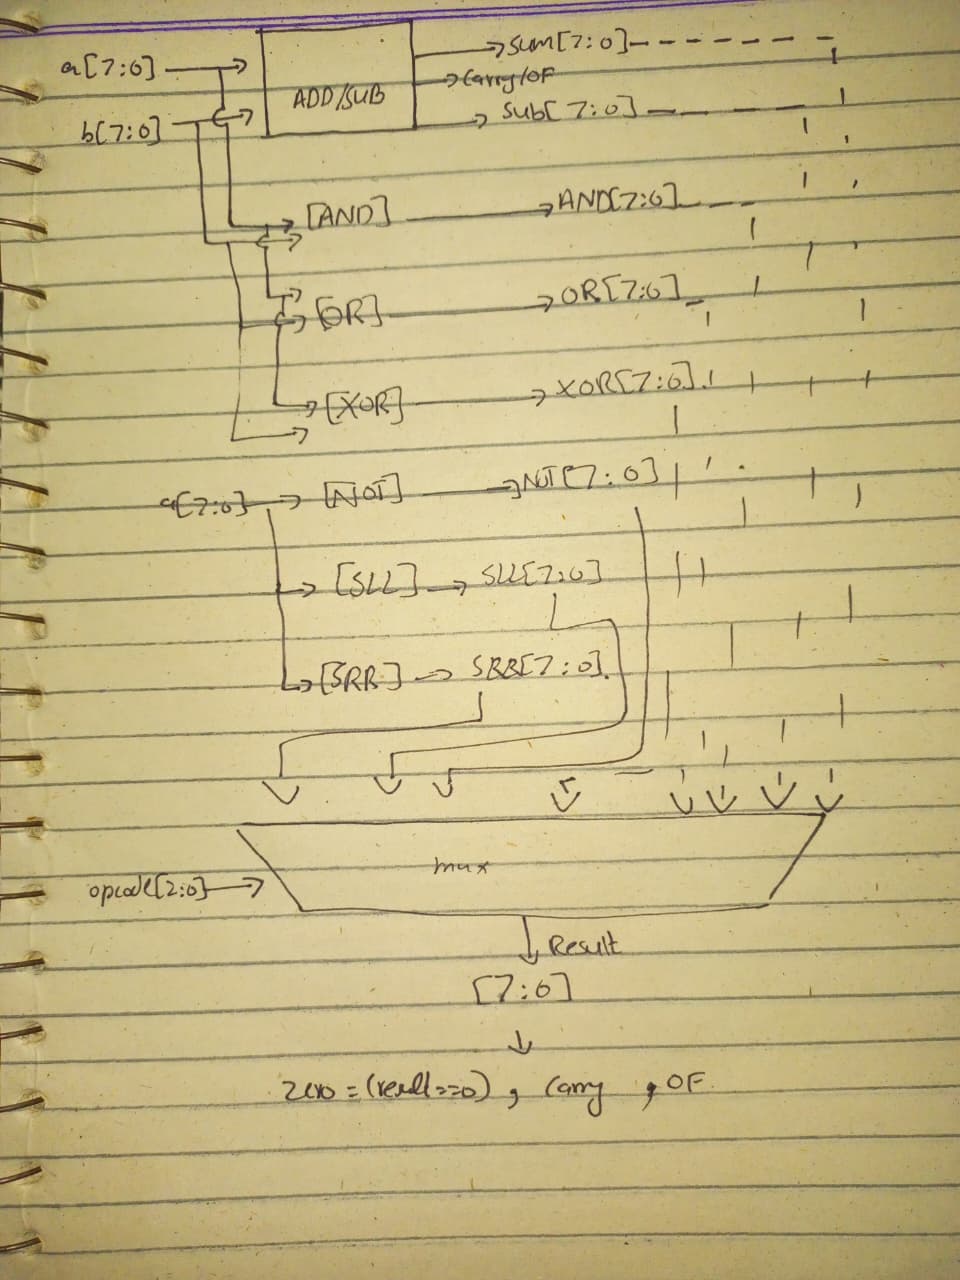 a[7:0]
sum[7:0]
ADD/SUB
Carry/OF
b[7:0]
sub[7:0]
[AND]
AND[7:0]
[OR]
OR[7:0]
[XOR]
XOR[7:0]
a[7:0]
[NOT]
NOT[7:0]
[SLL]
SLL[7:0]
[SRR]
SRR[7:0]
mux
opcode[2:0]
Result
[7:0]
zero = (result==0), Carry, OF